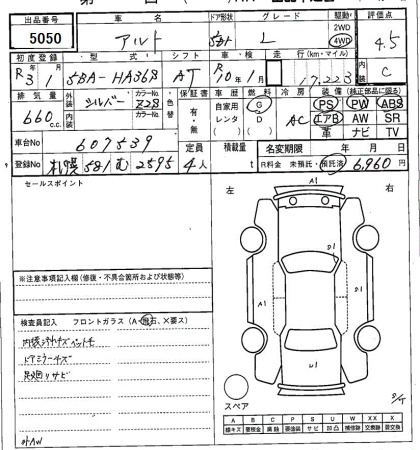 出品番号 車名 ドア形状 グレード 駆動 評価点
5050 アルト 5D L 2WD 4WD 4.5
初度登録 型式 シフト 車・検 走行(km・マイル) 内装
R3年1月 5BA-HA36S AT R10年1月 17,223 C
排気量 外装 シルバー カラーNo Z2S 色替 保証書 車歴 燃料 冷房 装備(純正部品に限る)
660c.c. 内装 カラーNo 有・無 自家用 レンタ G D AC PS PW ABS
エアB AW SR
革 ナビ TV
車台No 607539 定員 積載量 名変期限 年 月 日
登録No 札幌 581 む 2595 4人 t R料金 未預託・預託済 6,960円
セールスポイント
左 右
A1
D1
A1 D1
U1
※注意事項記入欄(修復・不具合箇所および状態等)
検査員記入 フロントガラス(A・飛石、X要ス)
内装汚れキズ
ドアミラーキズ
足廻りサビ
スペア
A B C P S U W X XX X
線キズ 腐食 要塗装 サビ 凹凸 補修跡 交換跡 要交換